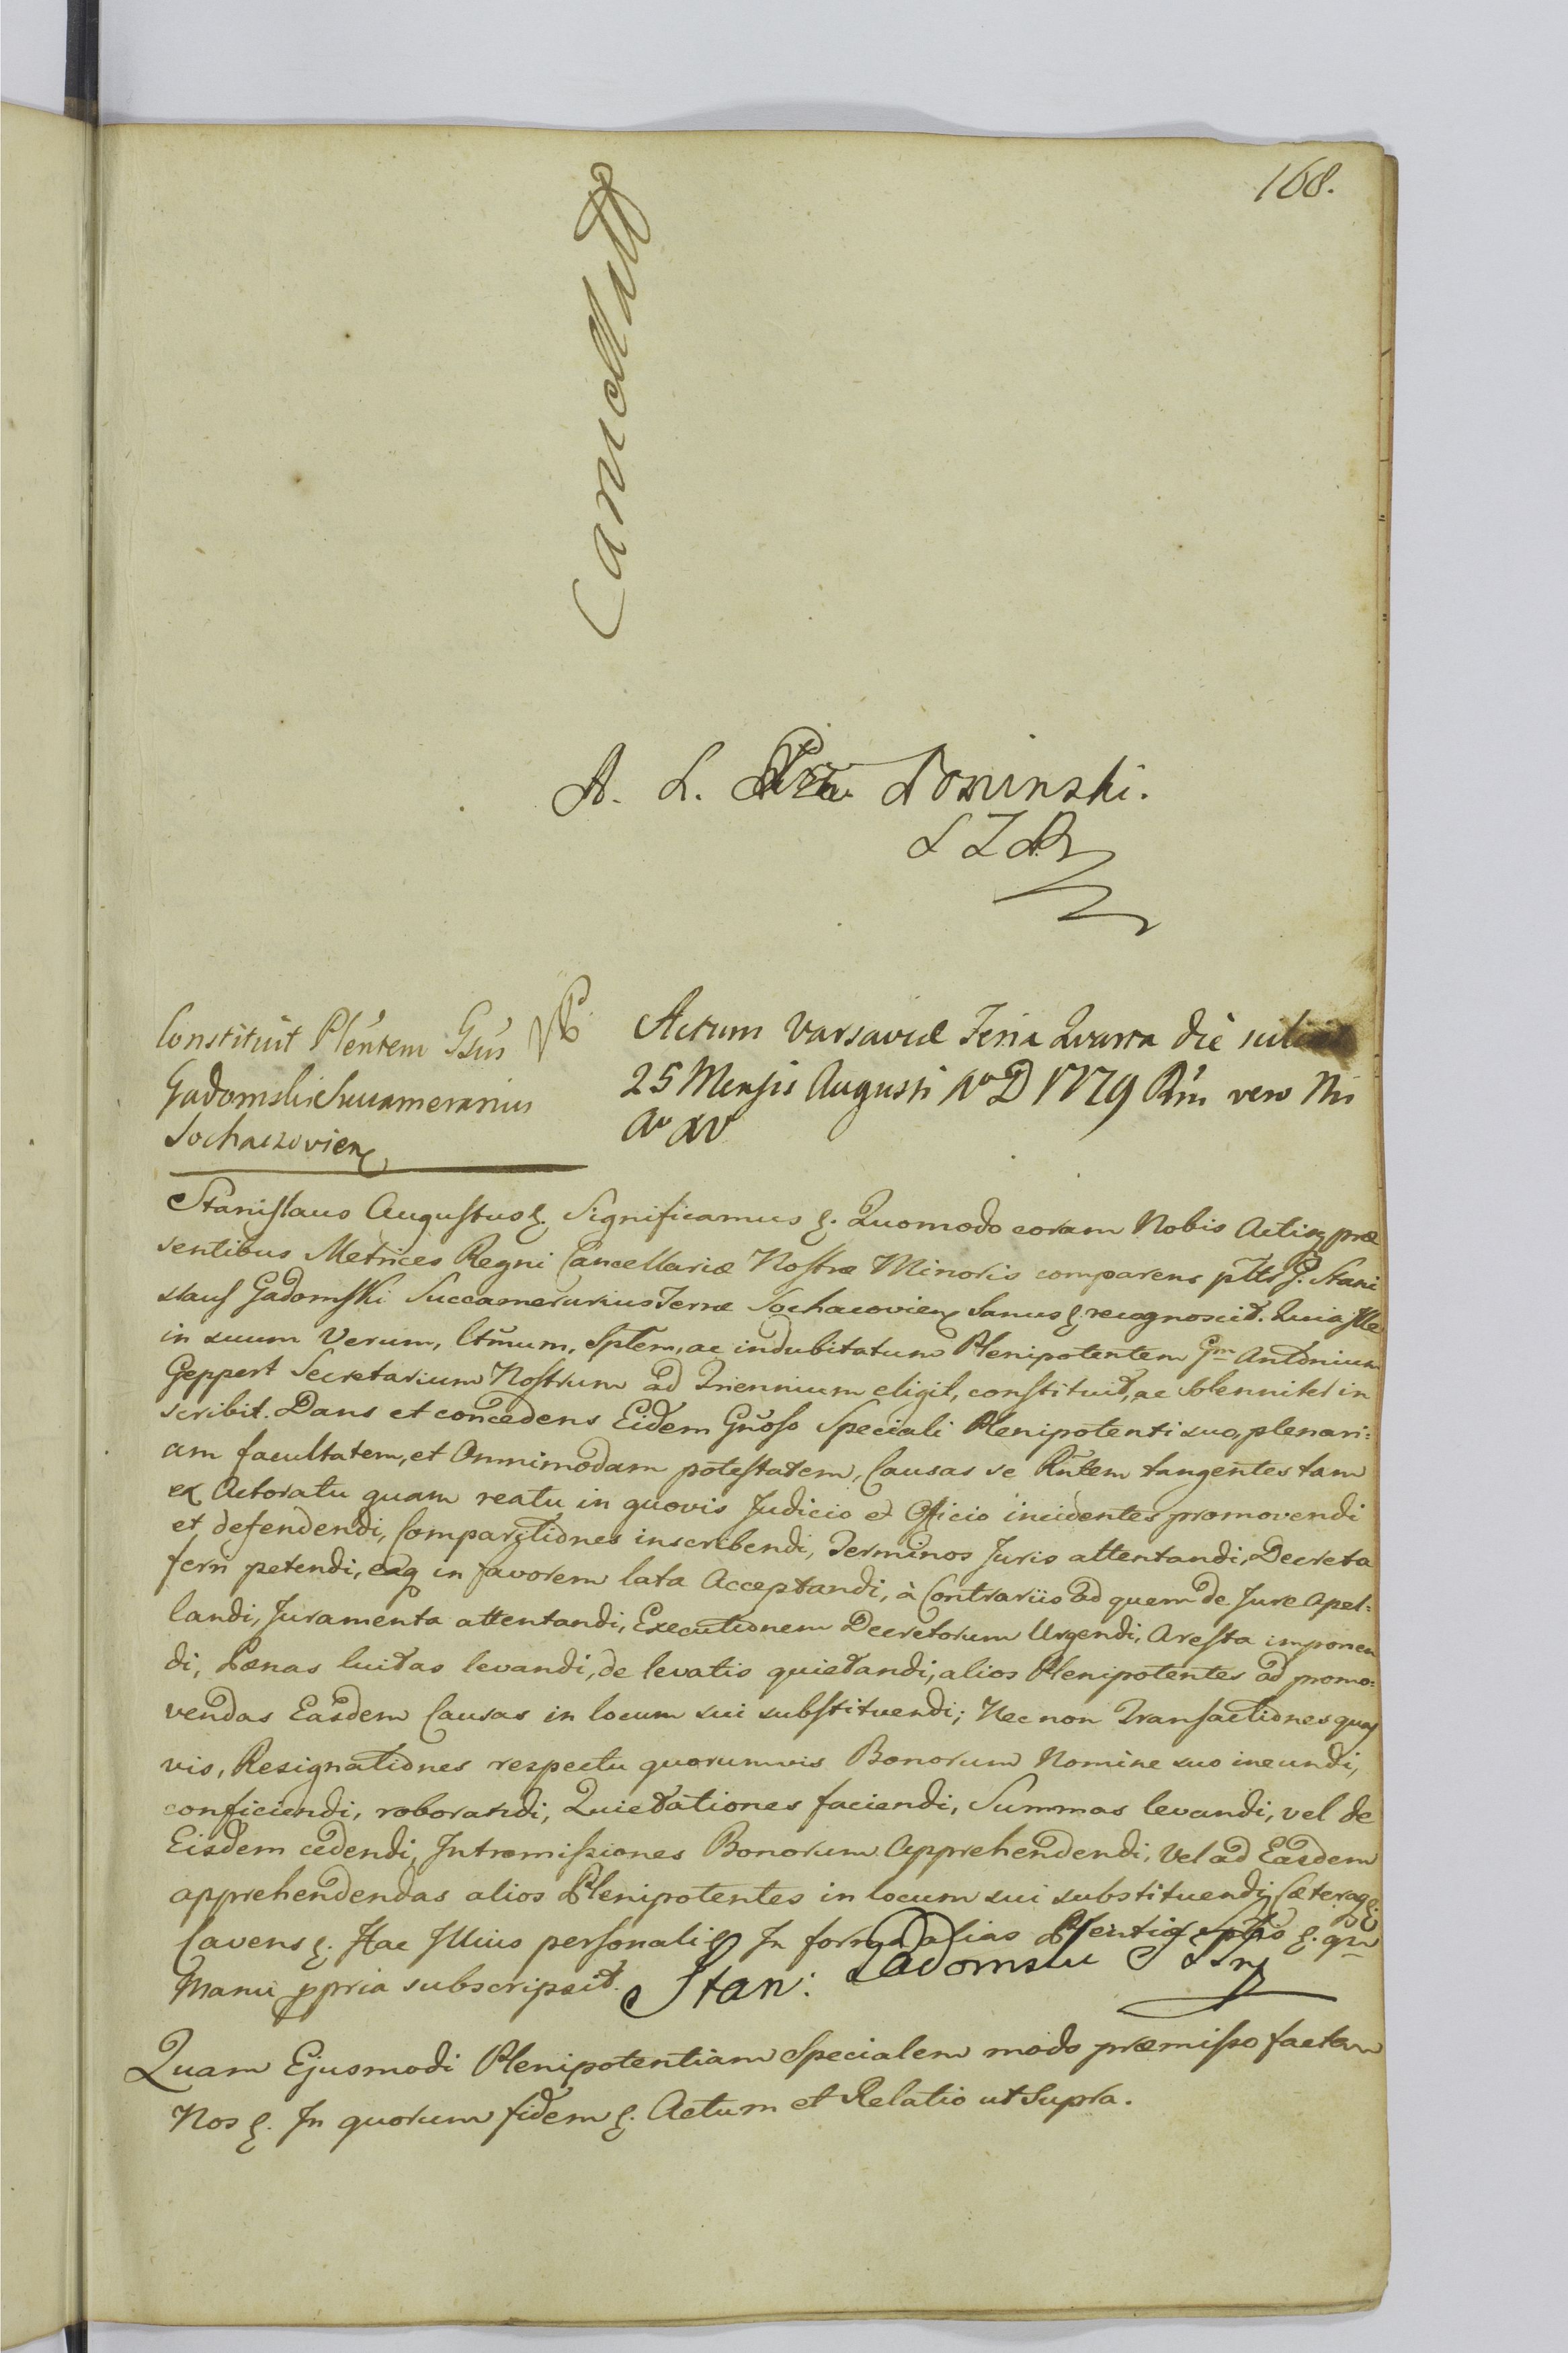 168.
Cancellatt
A. L. Pri Poninski.
Constituit Plentem Gsus
Gadomski Succamerarius
Sochaczovien
Actum Varsaviæ Feria Quarta die scilicet
25 Mensis Augusti Ao D 1779 Rni vero Nri
Ao XV
Stanislaus Augustus &. Significamus &. Quomodo coram Nobis Actisq præ
sentibus Metrices Regni Cancellariæ Nostræ Minoris comparens pltr G. Stani
slaus Gadomski Succamerarius Terræ Sochacovien Sanus & recognoscit. Quia Ille
in suum Verum, ltmum, Sptem, ac indubitatum Plenipotentem Gm Antonium
Geppert Secretarium Nostrum ad Triennium eligit, constituit, ac Solenniter in
scribit. Dans et concedens Eidem Gnoso Speciali Plenipotenti suo, plenari=
am facultatem, et Omnimodam potestatem, Causas se Rntem tangentes tam
ex Actoratu quam reatu in quovis Judicio et Officio incidentes promovendi
et defendendi, Comparitiones inscribendi, Terminos Juris attentandi, Decreta
ferri petendi, eaq in favorem lata Acceptandi, à Contrariis ad quem de Jure Apel=
landi, Juramenta attentandi, Executionem Decretorum Urgendi, Aresta imponen
di, Pænas luitas levandi, de levatis quietandi, alios Plenipotentes ad promo=
vendas Easdem Causas in locum sui substituendi; Nec non Transactiones quas
vis, Resignationes respectu quorumvis Bonorum Nomine suo ineundi,
conficiendi, roborandi, Quietationes faciendi, Summas levandi, vel de
Eisdem cedendi, Intromissiones Bonorum Apprehendendi, Vel ad Easdem
apprehendendas alios Plenipotentes in locum sui substituendi Cæteraq &.
Cavens &. Hac Illius personali & In forma alias &. qm
Manu ppria subscripsit. Stan: Gadomski
Quam Ejusmodi Plenipotentiam Specialem modo præmisso factam
Nos &. In quorum fidem &. Actum et Relatio ut Supra.